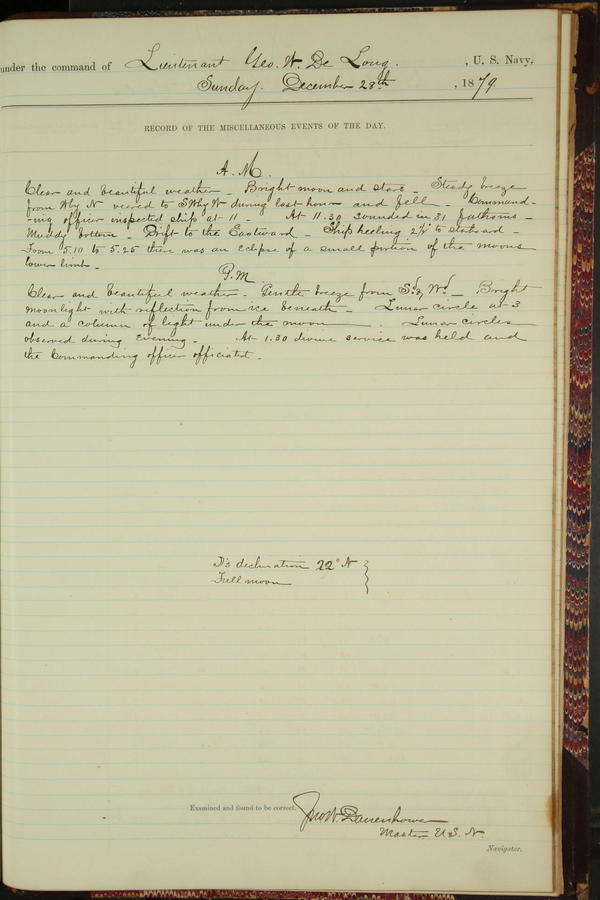 under the command of Lieutenant Geo. W. De Long. , U. S. Navy,
Sunday. December 28th , 1879.
RECORD OF THE MISCELLANEOUS EVENTS OF THE DAY.
A. M.
Clear and beautiful weather - Bright moon and stars - Steady breeze
from W by N veered to SW by W during last hour and fell - Command-
-ing officer inspected ship at 11 - At 11.30 sounded in 31 fathoms -
Muddy bottom - Drift to the Eastward - Ship heeling 2½° to starboard -
From 5.10 to 5.25 there was an eclipse of a small portion of the moons
lower limb -
P.M.
Clear and beautiful weather - Gentle breeze from Sd & Wd - Bright
moonlight with reflection from ice beneath - Lunar circle at 3
and a column of light under the moon . Lunar circles
observed during Evening - At 1.30 divine service was held and
the Commanding officer officiated -
☽'s declination 22° N
Full moon
Examined and found to be correct.
Jno W. Danenhower
Master U.S.N.
Navigator.